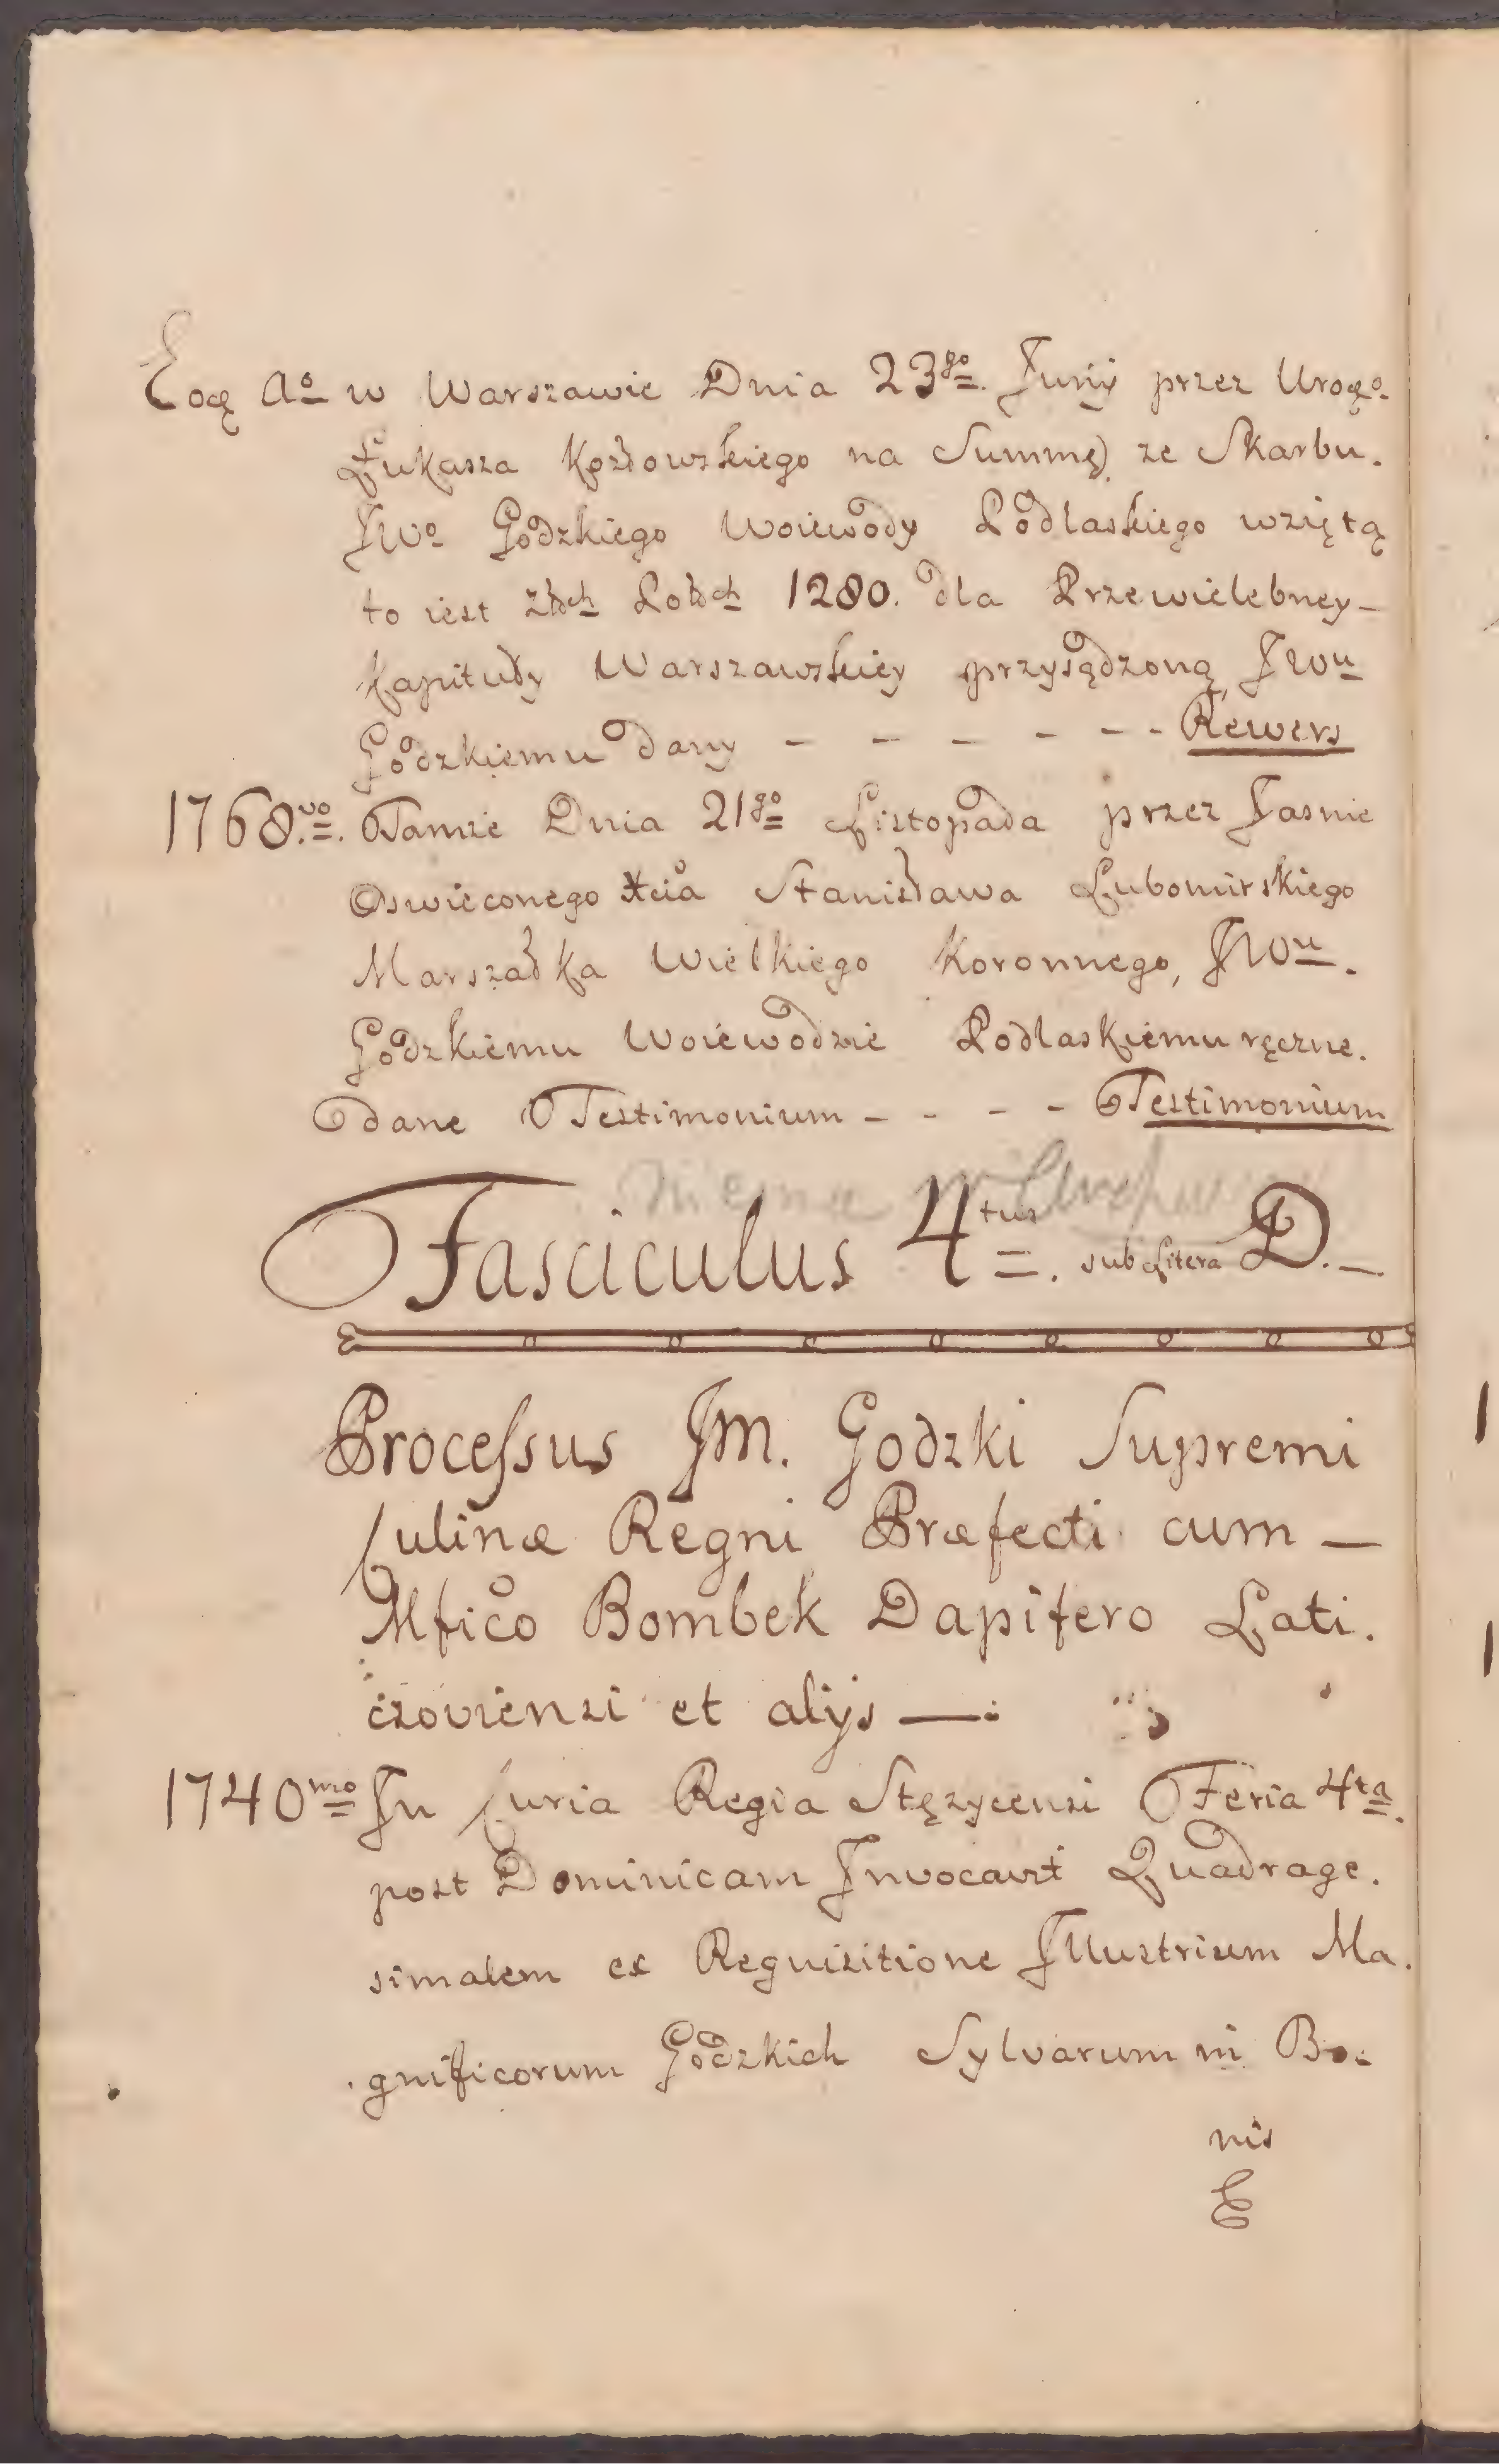 Eoq Aº w Warszawie Dnia 23go. Junÿ przez Uroqº.
Łukasza Kozłowskiego na Summę ze Skarbu.
JWº Godzkiego Woiewody Podlaskiego wziętą
to iest Złch Polch 1280. dla Przewielebney –
Kapituły Warszawskiey przysądzoną, JWu
Godzkiemu dany – – – – – – Rewers
1768.vo. Tamże Dnia 21go Listopada przez Jasnie
Oswieconego Xcia Stanisława Lubomirskiego
Marszałka Wielkiego Koronnego, JWu.
Godzkiemu Woiewodzie Podlaskiemu ręczne.
dane Testimonium – – – – Testimonium
Fasciculus 4tus. sub Litera D. –
Processus JM. Godzki Supremi
Culinæ Regni Præfecti cum —
Mfico Bombek Dapifero Lati.
czoviensi et alÿs —:
1740mo In Curia Regia Stężycensi Feria 4ta.
post Dominicam Invocavit Quadrage.
simalem ex Requisitione Illustrium Ma.
gnificorum Godzkich Sylvarum in Bo.
nis